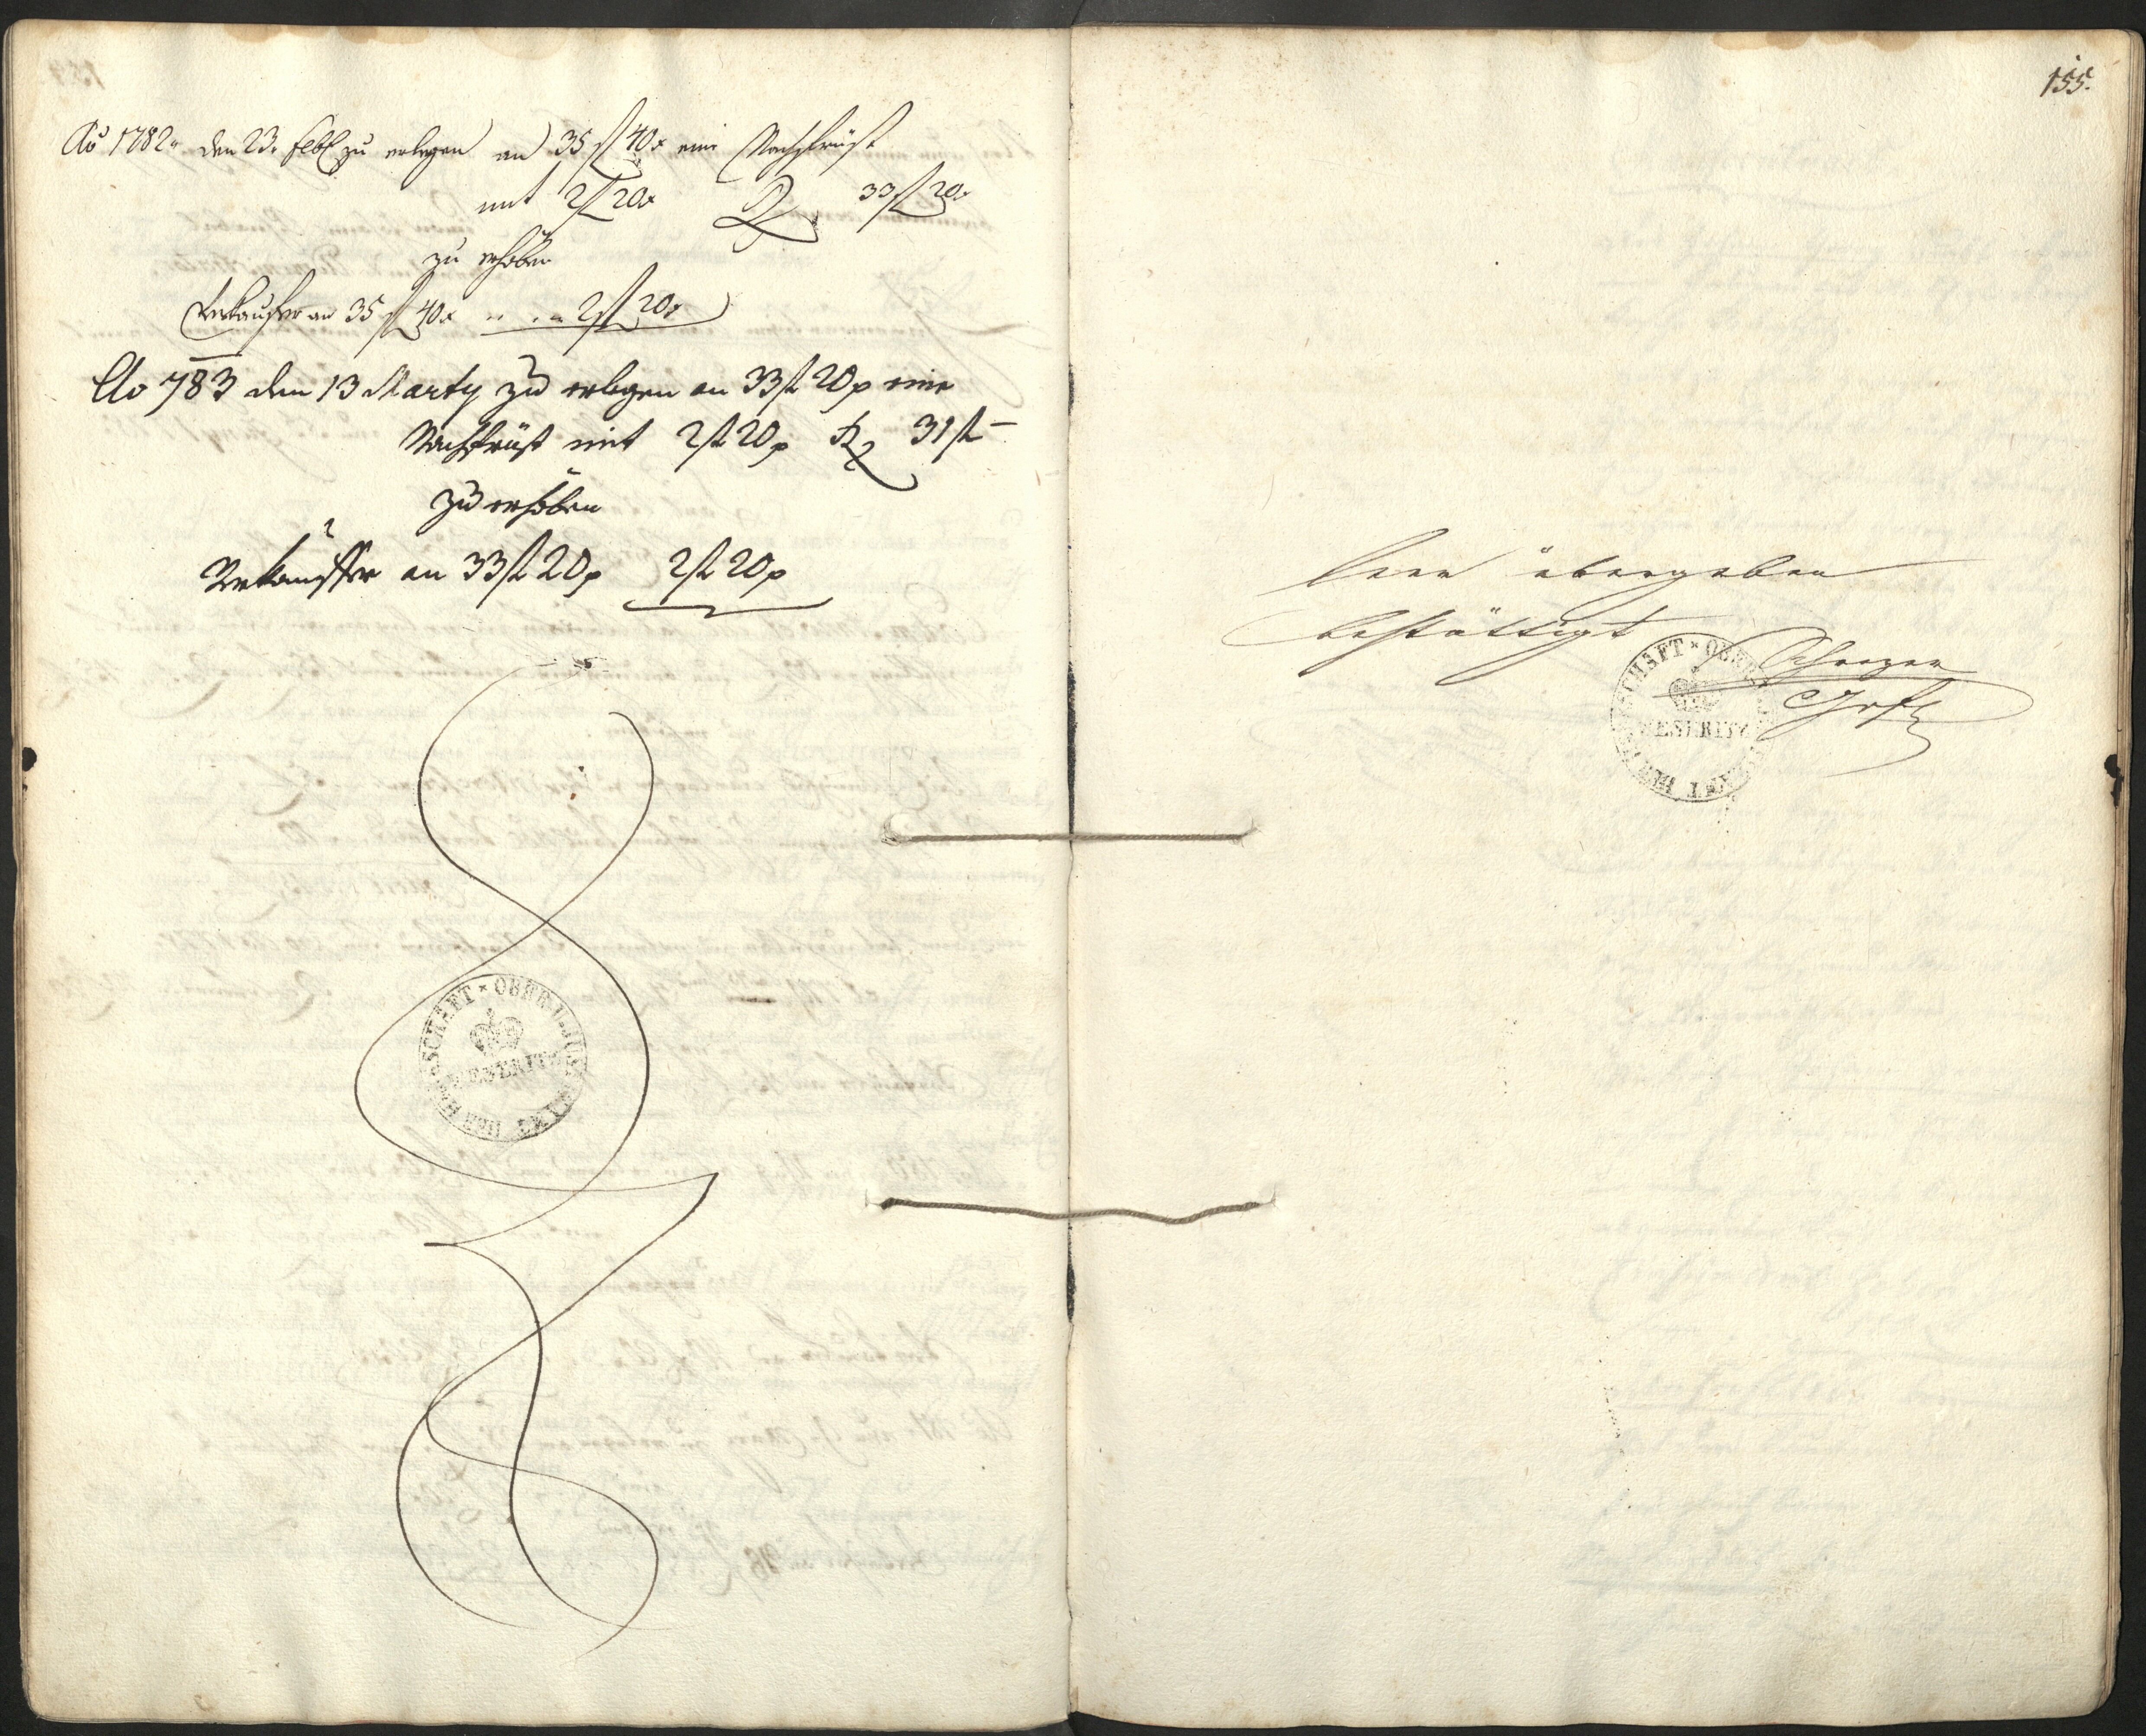 Ao 1782. den 23. Febr zu erlegen an 35 fl 40x eine Nachfrist
mit 2 fl 20x R 33 fl 20x
zu erhöben
Verkaufer an 35 fl 40x 2 fl 20x
Ao 783 den 13 Marty zu erlegen an 33 fl 20x eine
Nachfrist mit 2 fl 20x R 31 fl –
zu erhöben
Verkäuffer an 33 fl 20x 2 fl 20x
HERRSCHAFT × OBER
MESERITZ
155.
leer übergeben
bestättigt
HERRSCHAFT × OBER
MESERITZ